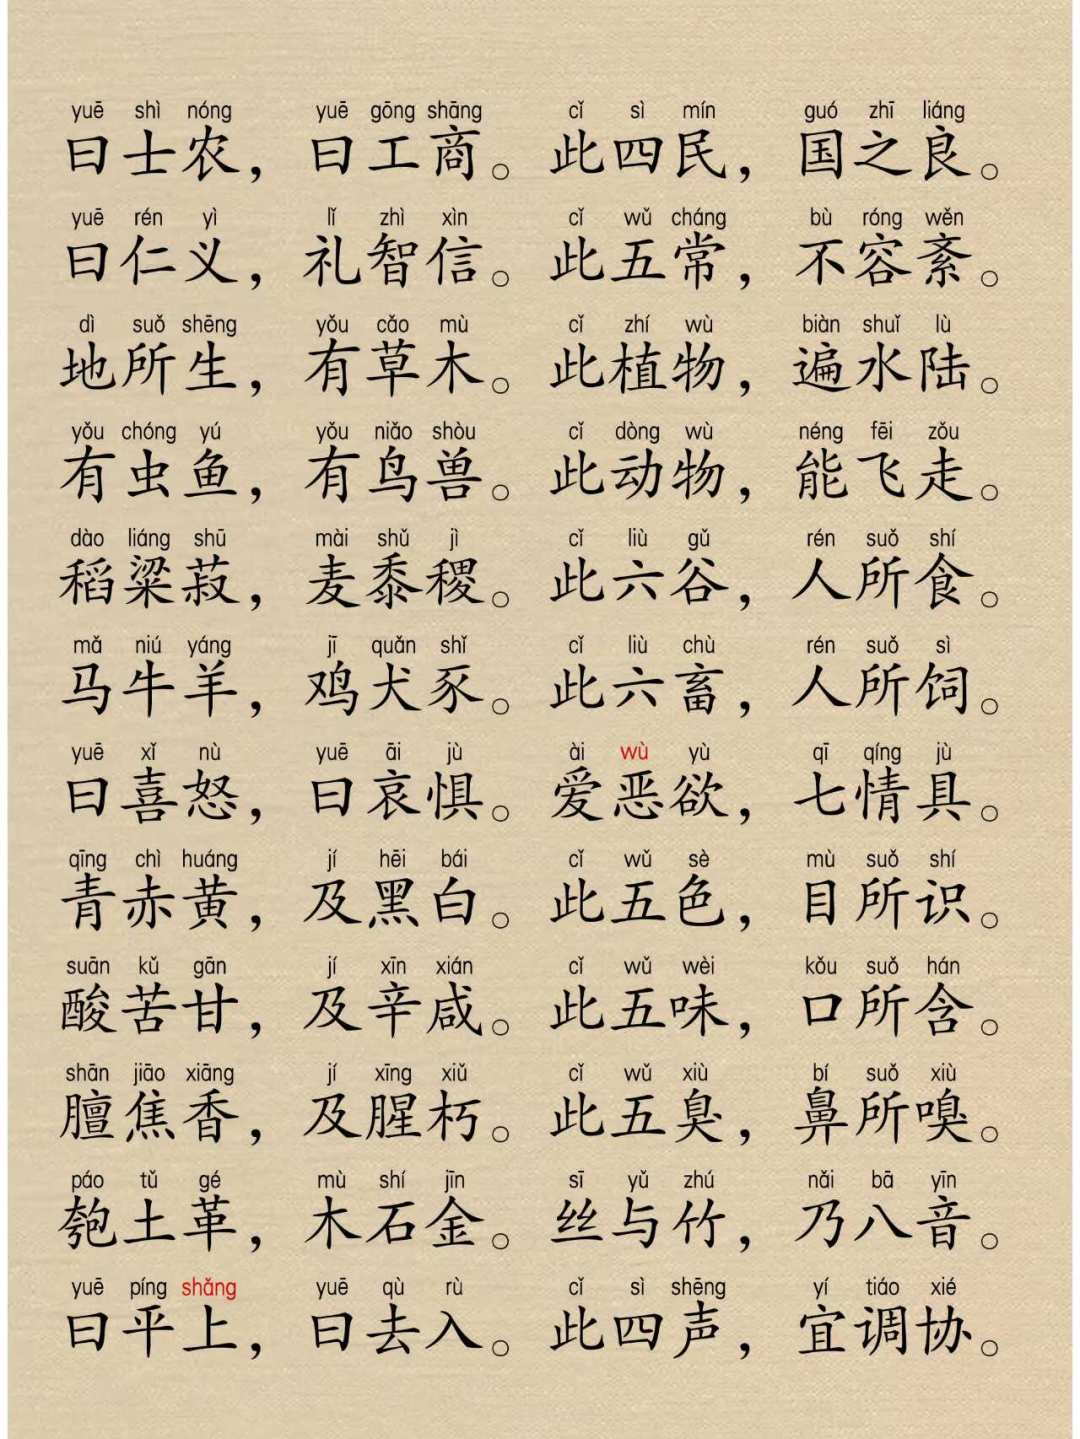 yuē shì nóng yuē gōng shāng cǐ sì mín guó zhī liáng
曰士农，曰工商。此四民，国之良。
yuē rén yì lǐ zhì xìn cǐ wǔ cháng bù róng wěn
曰仁义，礼智信。此五常，不容紊。
dì suǒ shēng yǒu cǎo mù cǐ zhí wù biàn shuǐ lù
地所生，有草木。此植物，遍水陆。
yǒu chóng yú yǒu niǎo shòu cǐ dòng wù néng fēi zǒu
有虫鱼，有鸟兽。此动物，能飞走。
dào liáng shū mài shǔ jì cǐ liù gǔ rén suǒ shí
稻粱菽，麦黍稷。此六谷，人所食。
mǎ niú yáng jī quǎn shǐ cǐ liù chù rén suǒ sì
马牛羊，鸡犬豕。此六畜，人所饲。
yuē xǐ nù yuē āi jù ài wù yù qī qíng jù
曰喜怒，曰哀惧。爱恶欲，七情具。
qīng chì huáng jí hēi bái cǐ wǔ sè mù suǒ shí
青赤黄，及黑白。此五色，目所识。
suān kǔ gān jí xīn xián cǐ wǔ wèi kǒu suǒ hán
酸苦甘，及辛咸。此五味，口所含。
shān jiāo xiāng jí xīng xiǔ cǐ wǔ xiù bí suǒ xiù
膻焦香，及腥朽。此五臭，鼻所嗅。
páo tǔ gé mù shí jīn sī yǔ zhú nǎi bā yīn
匏土革，木石金。丝与竹，乃八音。
yuē píng shǎng yuē qù rù cǐ sì shēng yí tiáo xié
曰平上，曰去入。此四声，宜调协。